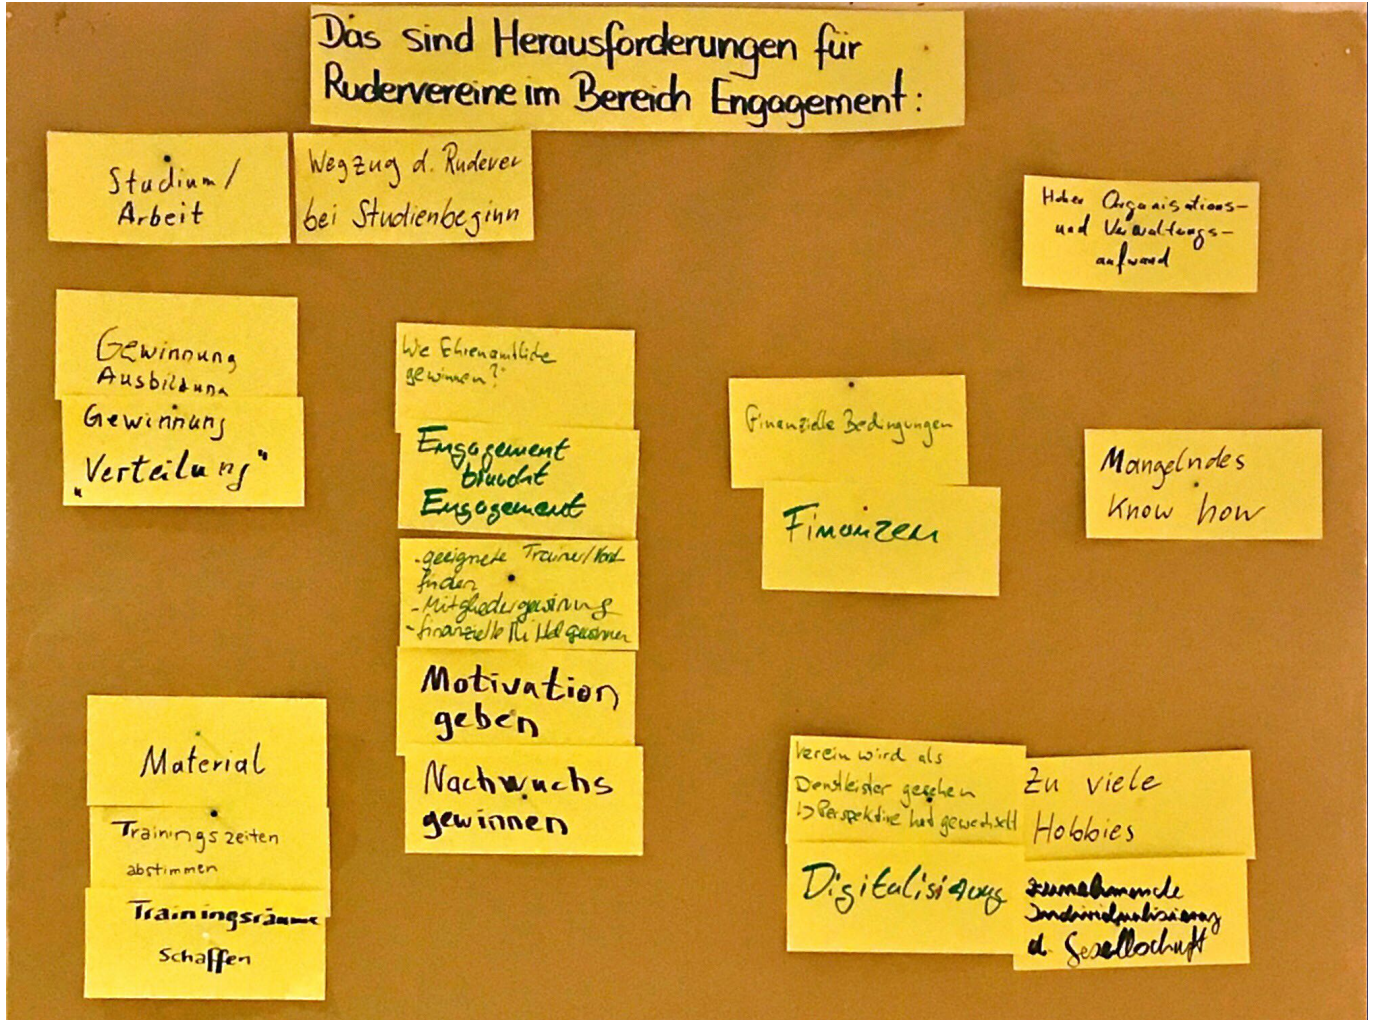 Das sind Herausforderungen für
Rudervereine im Bereich Engagement:
Studium/
Arbeit
Wegzug d. Ruderer
bei Studienbeginn
Hoher Organisations-
und Verwaltungs-
aufwand
Gewinnung
Ausbildung
Gewinnung
„Verteilung"
Wie Ehrenamtliche
gewinnen?
Engagement
braucht
Engagement
- geeignete Trainer/
finden
- Mitgliedergewinnung
- finanzielle Mittel gewinnen
Motivation
geben
Nachwuchs
gewinnen
Finanzielle Bedingungen
Finanzen
Mangelndes
Know how
Material
Trainingszeiten
abstimmen
Trainingsräume
schaffen
Verein wird als
Dienstleister gesehen
↳ Perspektive hat gewechselt
Digitalisierung
Zu viele
Hobbies
zunehmende
Individualisierung
d. Gesellschaft